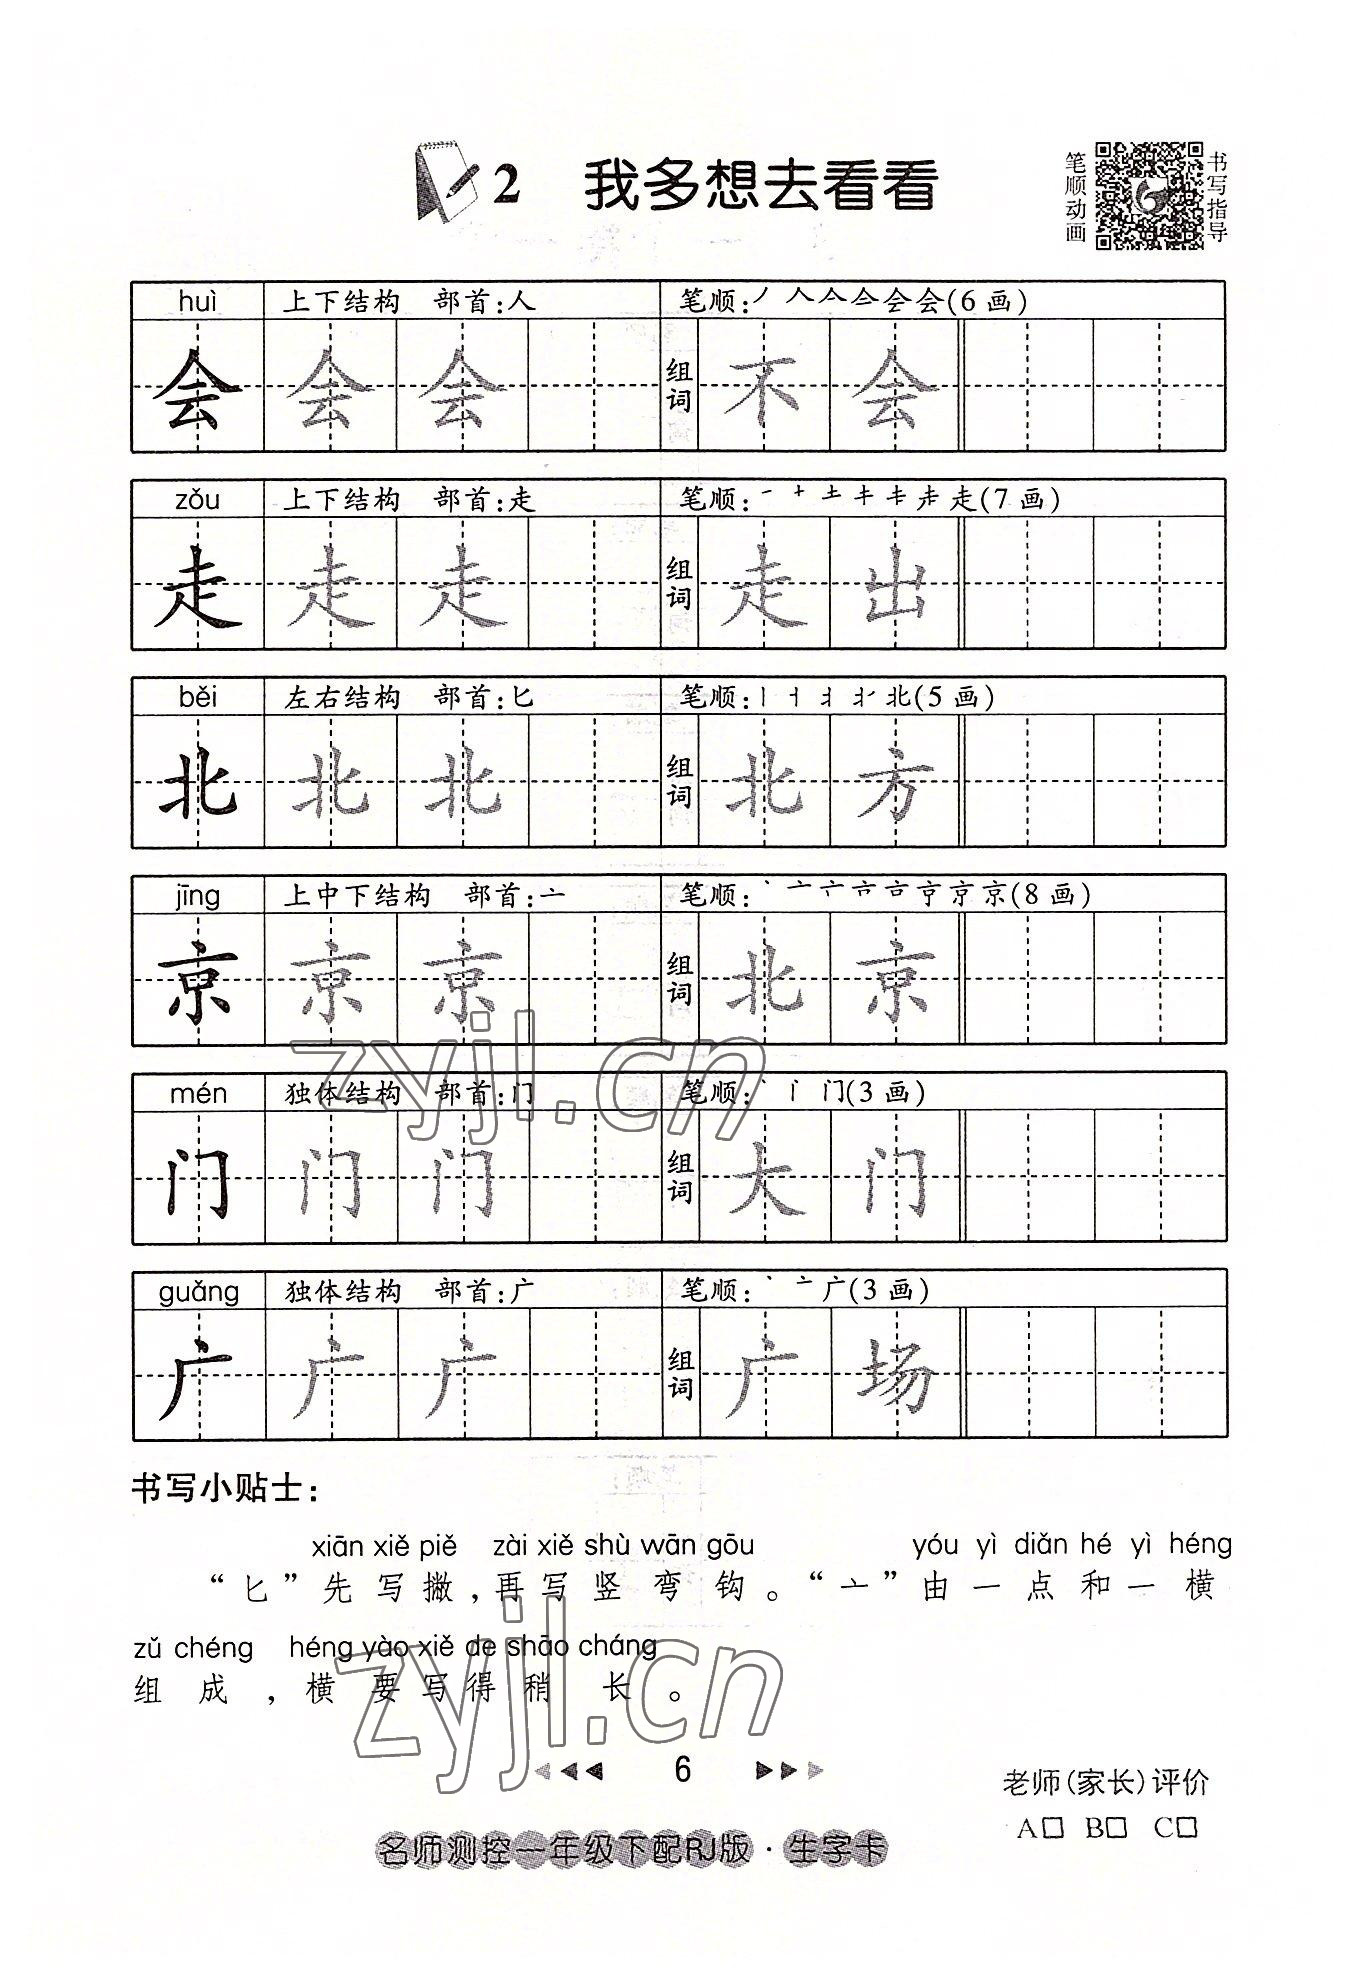 2 我多想去看看
笔顺动画
书写指导
huì 上下结构 部首:人 笔顺:丿人亼亼会会(6画)
会 会 会 组词 不 会
zǒu 上下结构 部首:走 笔顺:一十土キ走(7画)
走 走 走 组词 走 出
běi 左右结构 部首:匕 笔顺:北(5画)
北 北 北 组词 北 方
jīng 上中下结构 部首:亠 笔顺:丶亠京京(8画)
京 京 京 组词 北 京
mén 独体结构 部首:门 笔顺:丶门(3画)
门 门 门 组词 大 门
guǎng 独体结构 部首:广 笔顺:丶亠广(3画)
广 广 广 组词 广 场
书写小贴士：
xiān xiě piě zài xiě shù wān gōu yóu yì diǎn hé yì héng
“匕”先写撇,再写竖弯钩。“亠”由一点和一横
zǔ chéng héng yào xiě de shāo cháng
组成,横要写得稍长。
6
老师(家长)评价
A□ B□ C□
名师测控一年级下配RJ版·生字卡
zyjl.cn
zyjl.cn